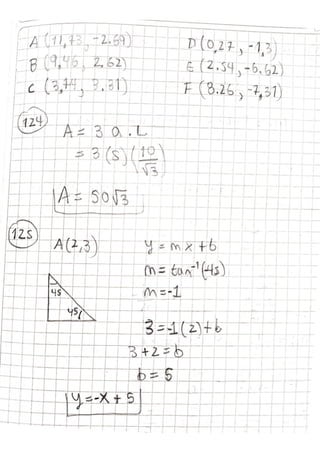 A (11,73, -2.69) D (0,27, -1,3)
B (9,46, 2,62) E (2.54, -6,62)
C (3,74, 3.31) F (8.26, -7,31)
124
A = 3 a . L
= 3 (5) (10/√3)
A = 50√3
125
A(2,3) y = mx + b
m = tan⁻¹(45)
45 m = -1
45
3 = -1(2) + b
3 + 2 = b
b = 5
y = -x + 5